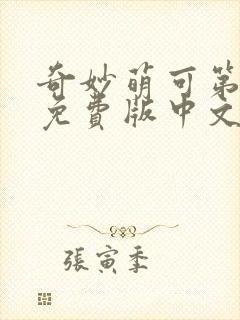 奇妙萌可第
免費版中文
張寅季